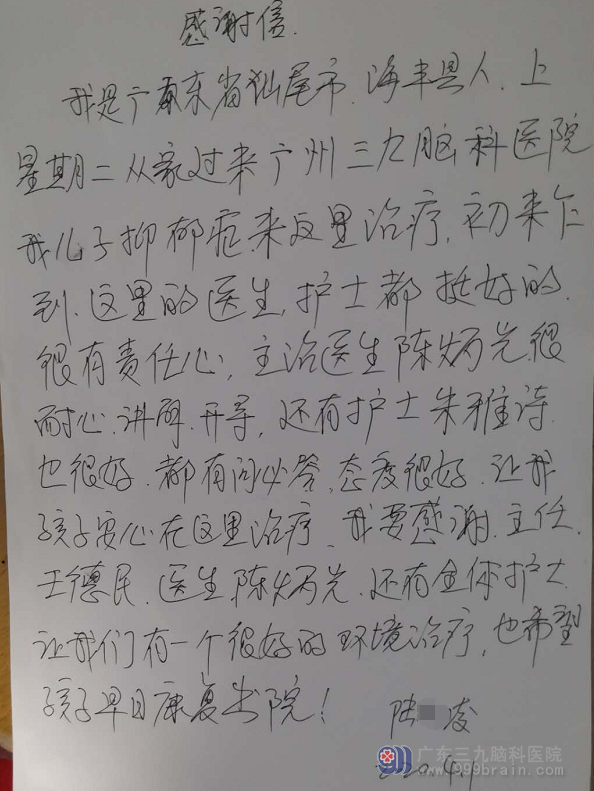 感谢信.
我是广东省汕尾市.海丰县人.上
星期二从家过来广州三九脑科医院
我儿子抑郁症来这里治疗.初来乍
到.这里的医生.护士都挺好的.
很有责任心.主治医生陈炳光.很
耐心.讲解.开导,还有护士朱雅诗.
也很好.都有问必答.态度很好.让我
孩子安心在这里治疗.我要感谢.主任.
王德民.医生陈炳光.还有全体护士.
让我们有一个很好的环境治疗,也希望
孩子早日康复出院!
陆 凌
2020.4.1
广东三九脑科医院
www.999brain.com